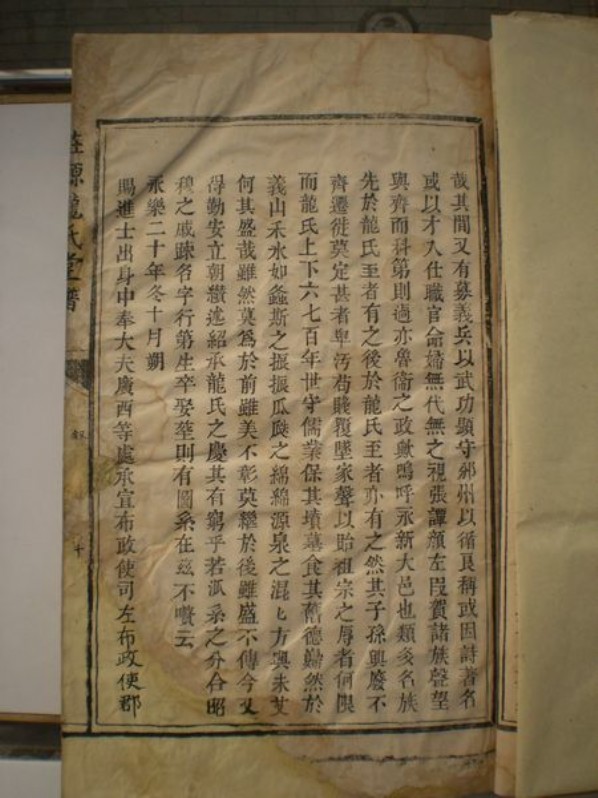 哉其間又有募義兵以武功顯守郴州以循良稱或因詩著名
或以才入仕職官命婦無代無之視張譚顏左段賀諸族聲望
與齊而科第則過亦魯衞之政歟嗚呼永新大邑也類多名族
先於龍氏至者有之後於龍氏至者亦有之然其子孫興廢不
齊遷徙莫定甚者卑汚苟賤覆墜家聲以貽祖宗之辱者何限
而龍氏上下六七百年世守儒業保其墳墓食其舊德巋然於
義山禾水如螽斯之振振瓜瓞之綿綿源泉之混匕方興未艾
何其盛哉雖然莫爲於前雖美不彰莫繼於後雖盛不傳今又
得勤安立朝纘述紹承龍氏之慶其有窮乎若派系之分合昭
穆之戚疎名字行第生卒娶塟則有圖系在茲不贅云
永樂二十年冬十月朔
賜進士出身中奉大夫廣西等處承宣布政使司左布政使郡
源龍氏堂譜
十